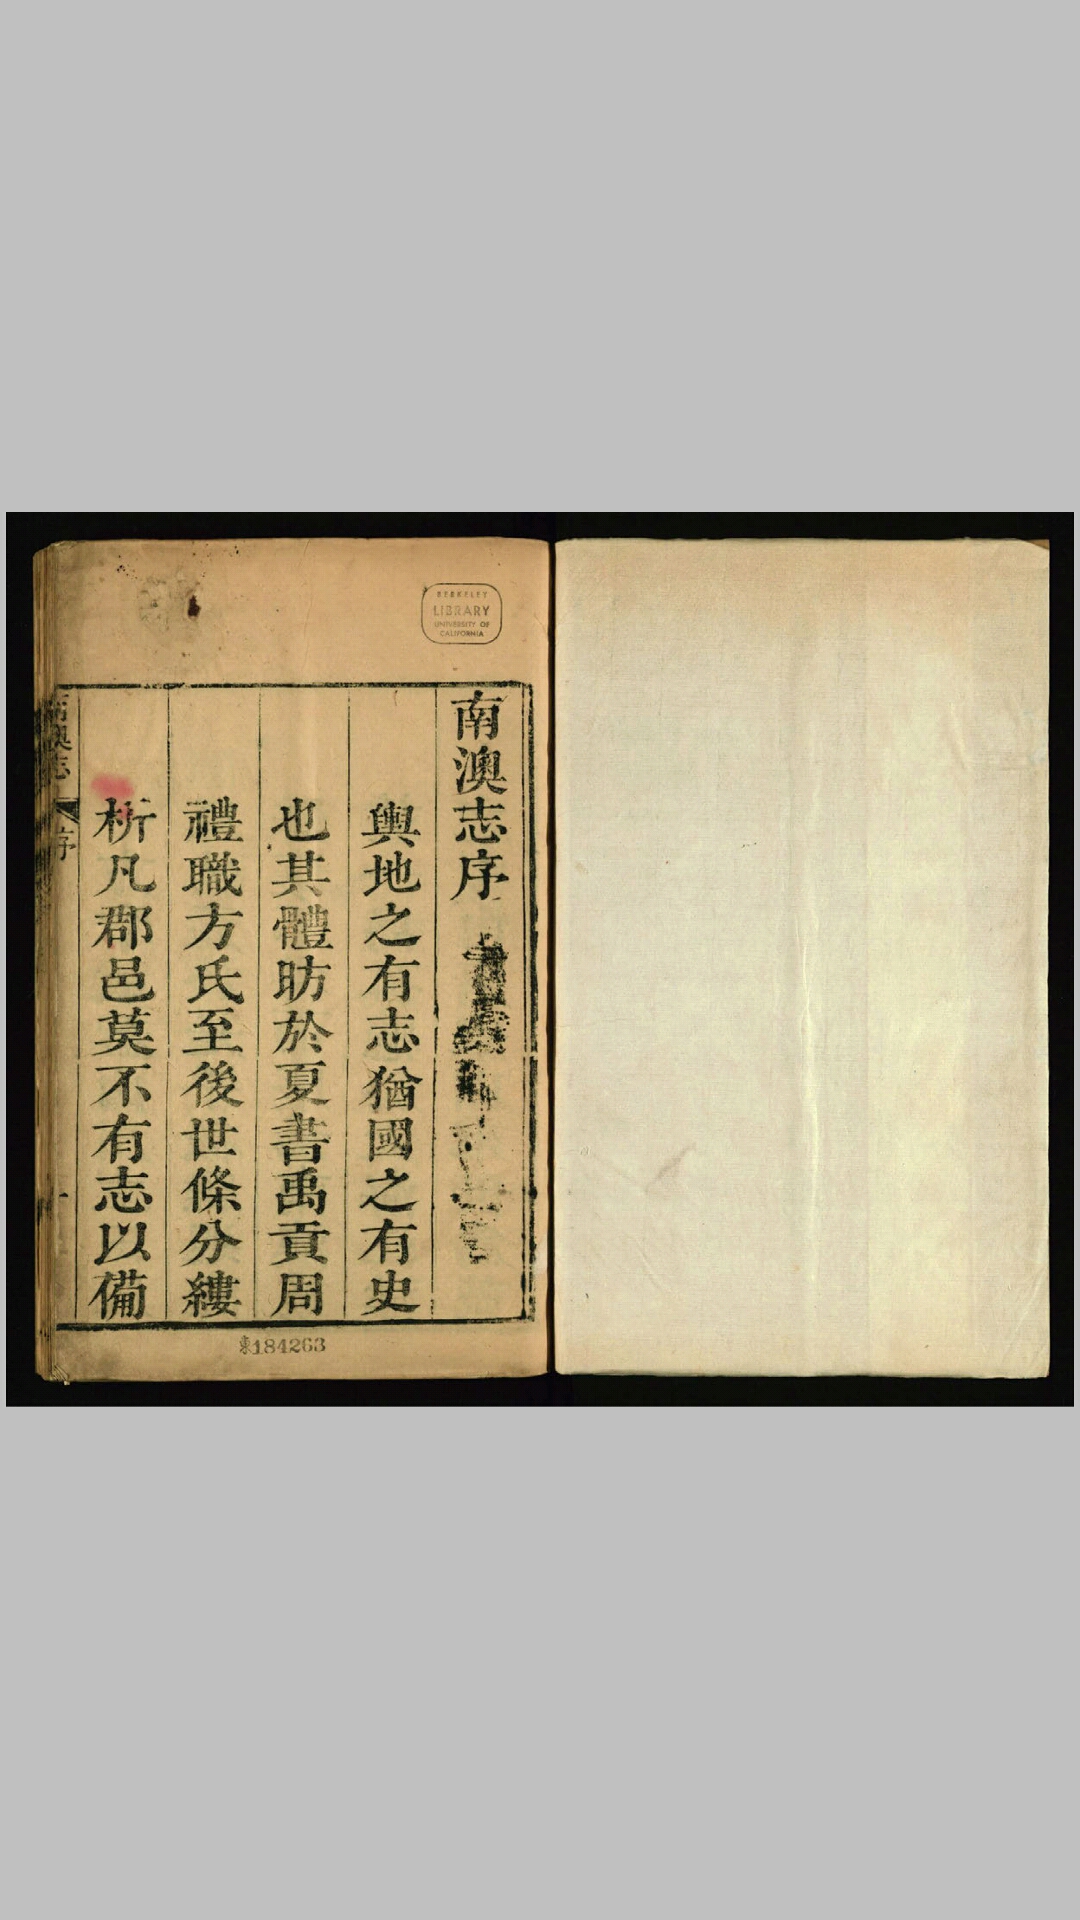 南澳志序
輿地之有志猶國之有史
也其體昉於夏書禹貢周
禮職方氏至後世條分縷
析凡郡邑莫不有志以備
南澳志
序
一
BERKELEY
LIBRARY
UNIVERSITY OF
CALIFORNIA
東184263